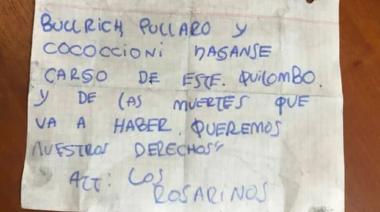 BULLRICH PULLARO Y
COCOCCIONI HAGANSE
CARGO DE ESTE. QUILOMBO.
Y DE LAS MUERTES QUE
VA A HABER. QUEREMOS
NUESTROS DERECHOS
ATT: LOS
ROSARINOS